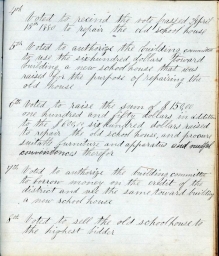 4th
Voted to recind the vote passed April
18th 1880 to repair the old school house
5th Voted to authorize the building committee
to use the six hundred dollars toward
building a new school house that was
raised for the purpose of repairing the
old house
6th Voted to raise the sum of $
one hundred and fifty dollars in addition
to the six hundred dollars raised
to repair the old school house and procure
suitable furniture and apparatus and
conveniences therefor
7th Voted to authorize the building committee
to borrow money on the credit of the
district and all the same toward building
a new school house
8th Voted to sell the old schoolhouse to
the highest bidder